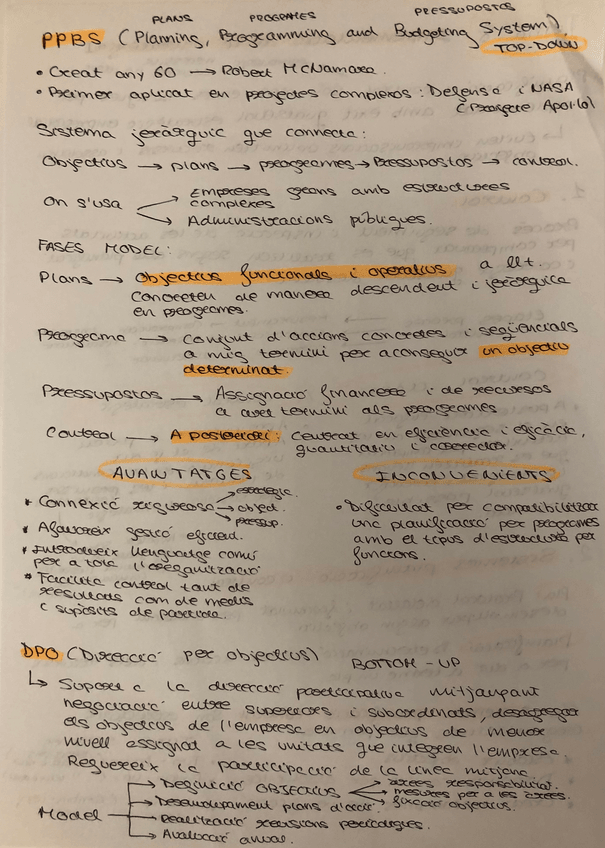 PLANS PROGRAMES PRESSUPOSTOS
PPBS (Planning, Programming and Budgeting System)
TOP-DOWN
• Creat any 60 → Robert McNamara.
• Primer aplicat en projectes complexos: Defensa i NASA
(Projecte Apol·lo)
Sistema jeràrquic que connecta:
Objectius → plans → programes → Pressupostos → control.
On s'usa → Empreses grans amb estructures
complexes
→ Administracions públiques.
FASES MODEL:
Plans → Objectius funcionals i operatius a ll t.
Concreten de manera descendent i jeràrquica
en programes.
Programa → conjunt d'accions concretes i seqüencials
a mig termini per aconseguir un objectiu
determinat.
Pressupostos → Assignació financera i de recursos
a curt termini als programes
Control → A posteriori: Centrat en eficiència i eficàcia,
quantitatiu i corrector.
AVANTATGES
* Connexió rigurosa → estratègic.
→ object.
→ pressup.
* Afavoreix gestió eficient.
* Introdueix llenguatge comú
per a tota l'organització
* Facilita control tant de
resultats com de medis
i supòsits de partida.
INCONVENIENTS
• Dificultat per compatibilitzar
una planificació per programes
amb el tipus d'estructura per
funcions.
DPO (Direcció per objectius) BOTTOM-UP
↳ Suposa la direcció participativa mitjançant
negociació entre superiors i subordinats, desagregar
els objectius de l'empresa en objectius de menor
nivell assignat a les unitats que integren l'empresa
Requereix la participació de la línea mitjana.
Model → Definició OBJECTIUS → àrees responsabilitat.
→ mesures per a les àrees.
→ fixació objectius.
→ Desenvolupament plans d'acció
→ Realització revisions periòdiques.
→ Avaluació anual.